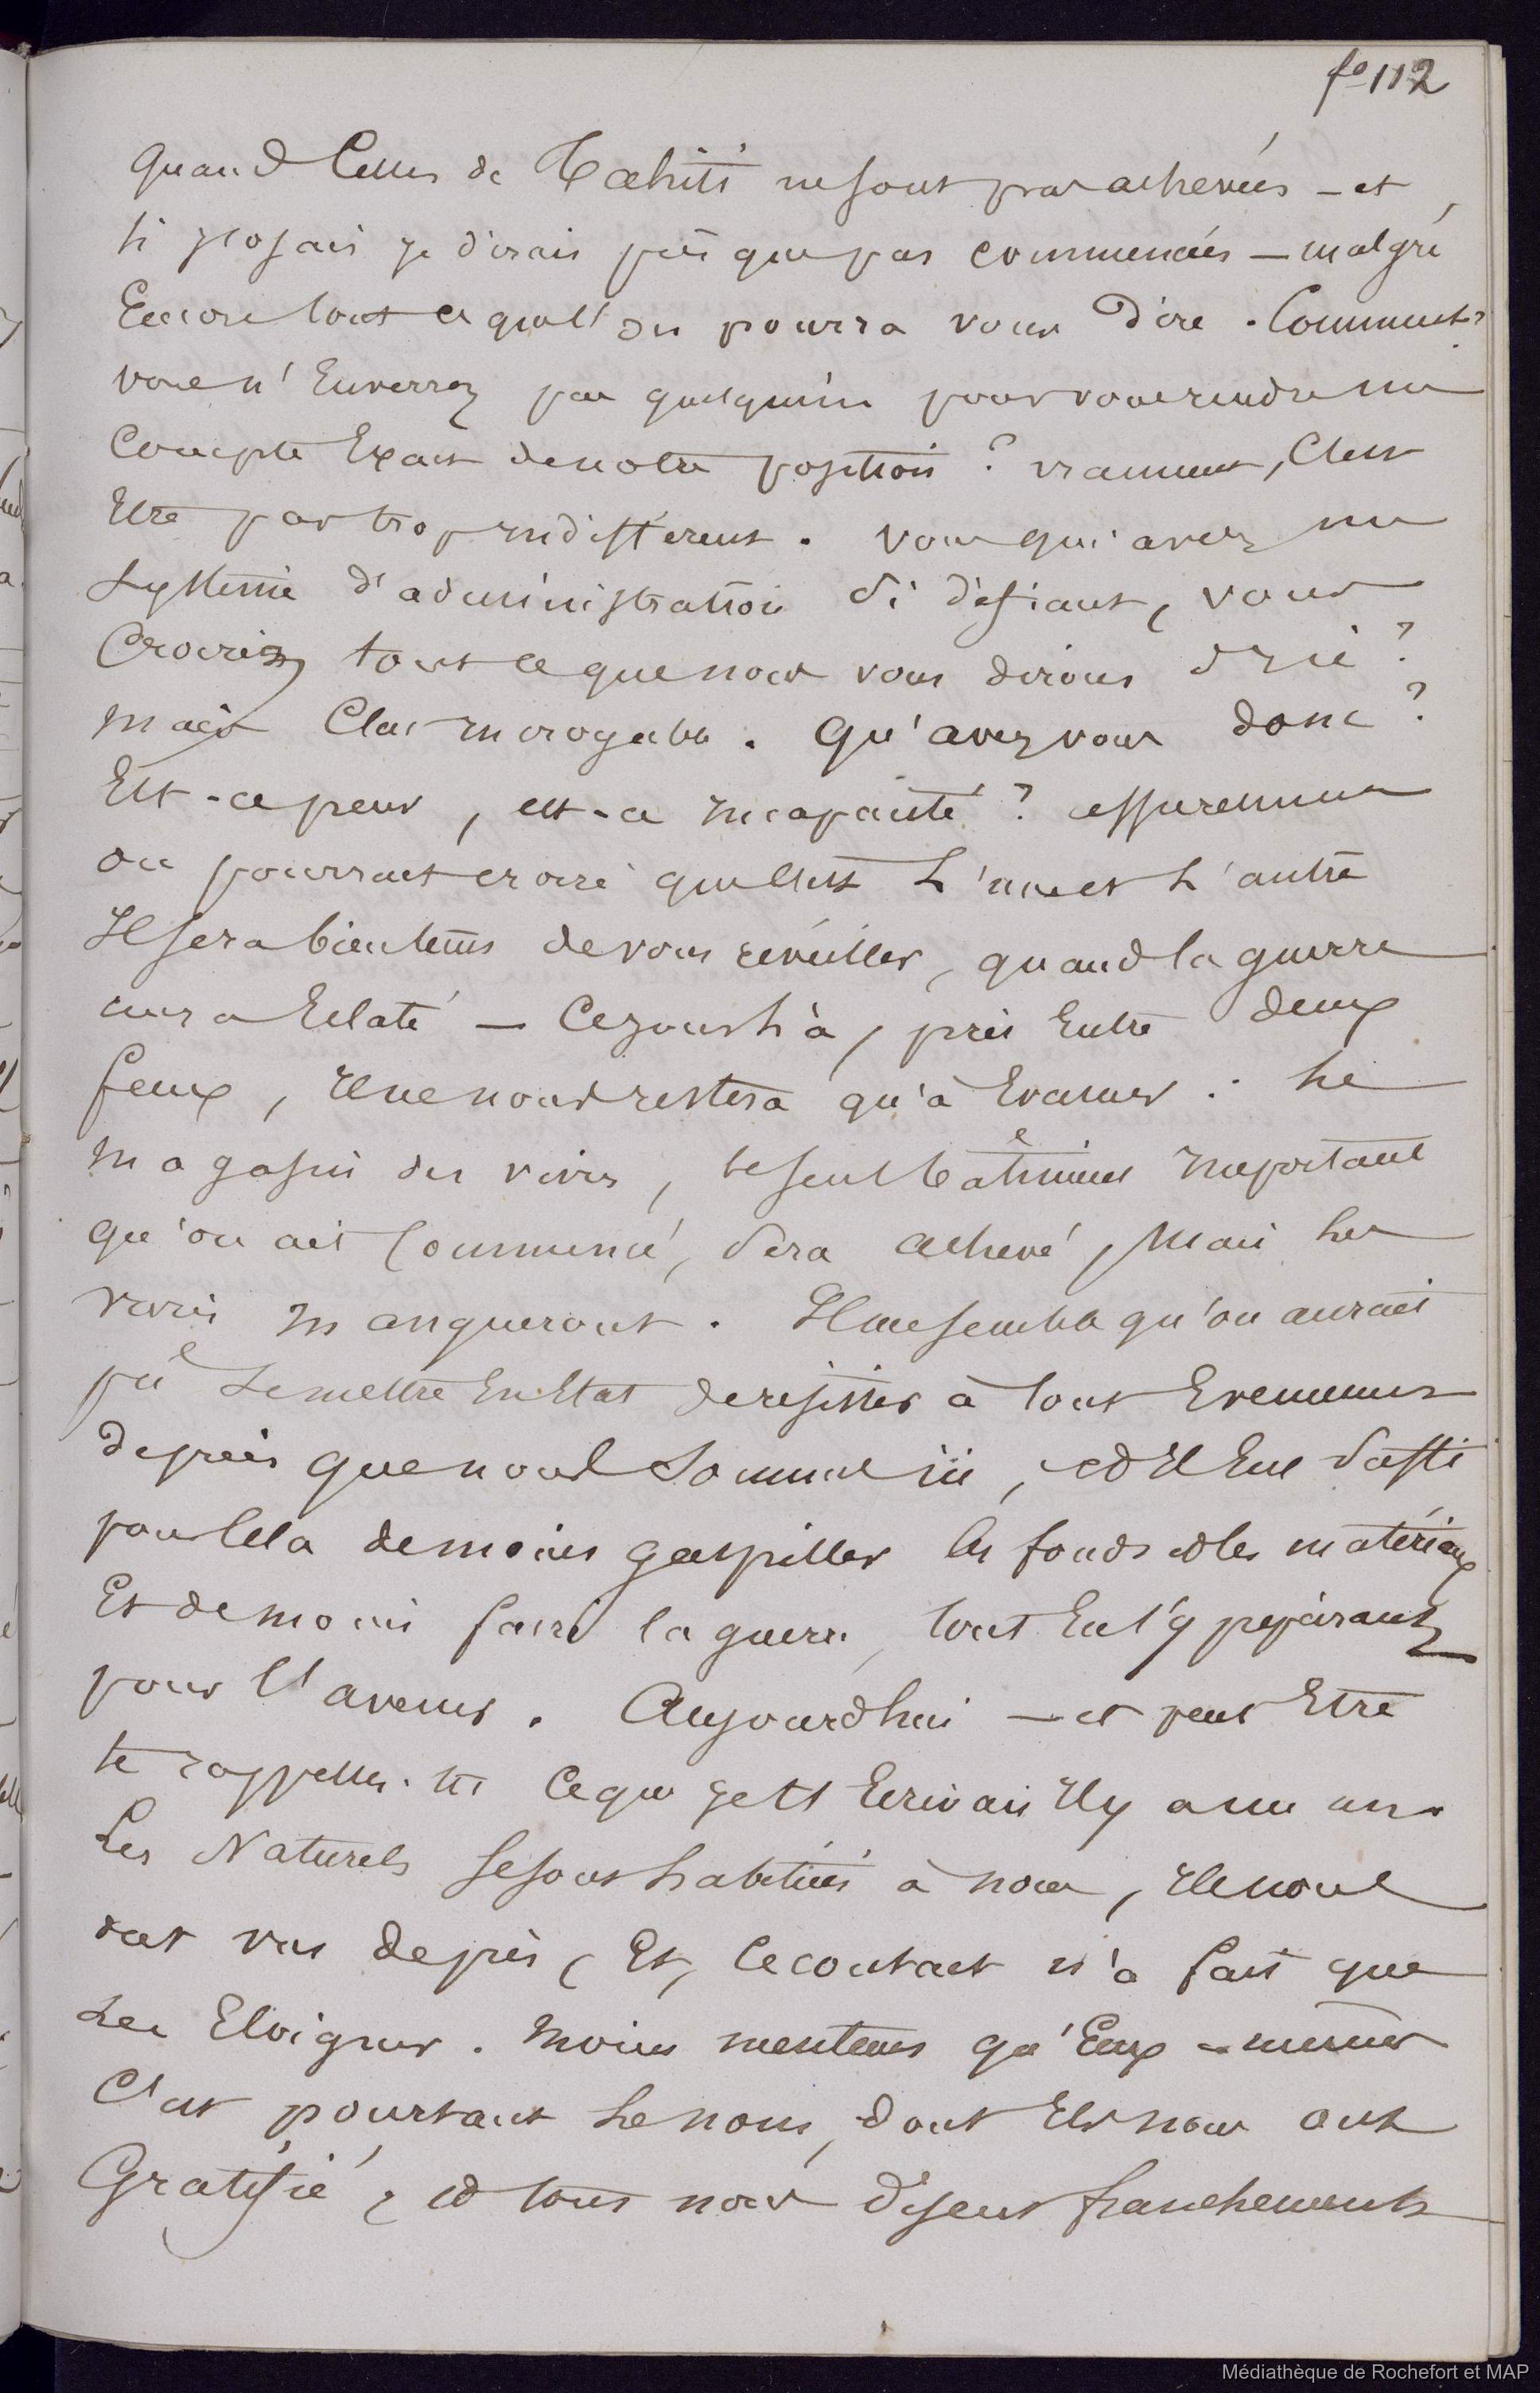 fo 112
quand Celles de Tahiti ne sont pas achevées - et
si j'osais je dirais presque pas commencées - malgré
Encore tout ce que l'on pourra vous dire. Comment?
vous n'Enverrez pas quelqu'un pour vous rendre un
Compte Exact de notre position ? vraiment, C'est
Etre par trop indifférent. vous qui avez un
Système d'administration Si défiant, vous
Croiriez tout ce que nous vous dirons d'ici ?
mais C'est incroyable. Qu'avez vous donc ?
Est-ce peur, est-ce incapacité ? assurément
on pourrait croire que C'est L'un et L'autre
Il sera bien tems de vous réveiller, quand la guerre
aura Eclaté - Ce jour là, pris Entre deux
feux, il ne nous restera qu'à Evacuer : Le
magasin des vivres, le seul bâtiment important
qu'on ait Commencé, Sera achevé, Mais les
vivres manqueront. Il me semble qu'on aurait
pu Se mettre En Etat de resister à tout Evenement
depuis que nous Sommes ici, et Il Eut Suffi
pour Cela de moins gaspiller les fonds et les matériaux
Et de moins faire la guerre, tout En s'y préparant
pour l'avenir. Aujourd'hui - et peut Etre
te rappelles-tu Ce que je t'Ecrivais Il y a un an.
Les Naturels Se sont habitués à nous, Ils nous
ont vus de près, Et, le contact n'a fait que
Les Eloigner. Moins menteurs qu'Eux-mêmes
C'est pourtant Le nom, dont Ils nous ont
Gratifié, et tous nous disent franchement
Médiathèque de Rochefort et MAP